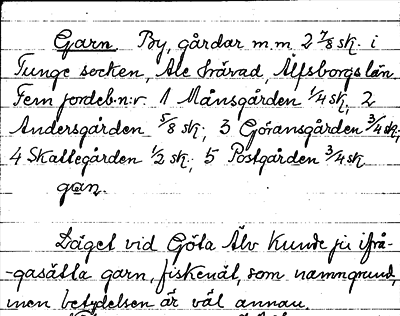 Garn By, gårdar m.m. 2 7/8 sk. i
Tunge socken, Ale härad, Älfsborgs län.
Fem jordeb.n:r. 1 Månsgården 1/4 sk, 2
Andersgården 5/8 sk; 3 Göransgården 3/4 sk;
4 Skattegården 1/2 sk; 5 Postgården 3/4 sk
gan.
Läget vid Göta Älv kunde ju ifrå-
-gasätta garn, fiskenät, som namngrund,
men betydelsen är väl annan.